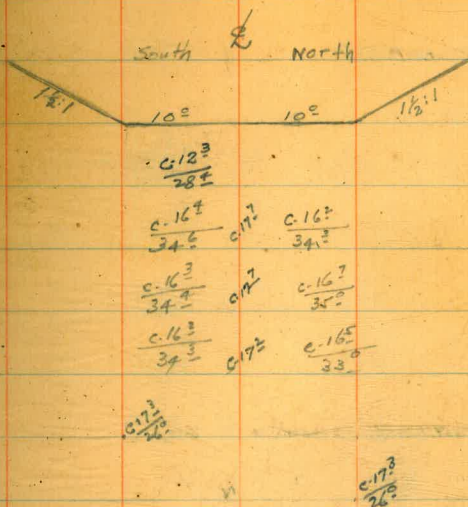 ℄
South North
1½:1 10⁰ 10⁰ 1½:1
C·12³/28⁴
C·16⁴/34⁶ C·17⁷ C·16²/34³
C·16³/34⁴ C·17⁷ C·16⁷/35⁰
C·17² C·16⁵/33⁰
C·17³/26⁰
C·17³/26⁰